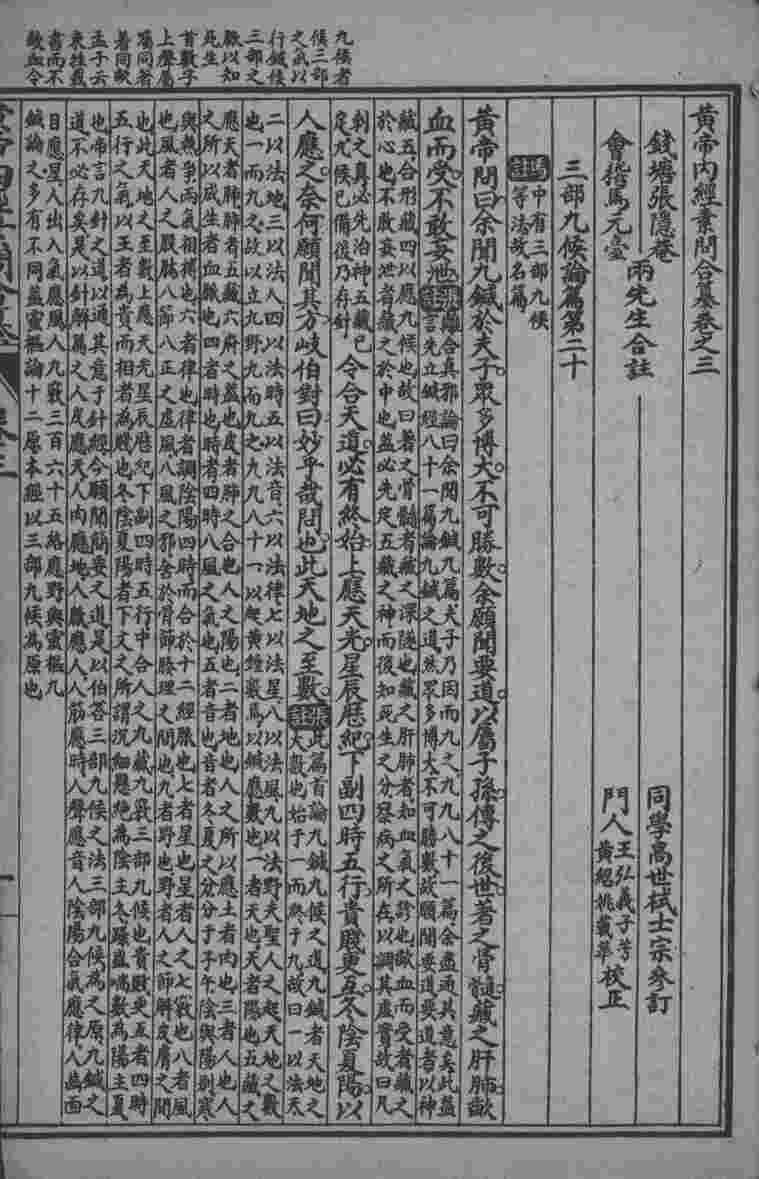 黃帝內經素問合纂卷之三
錢塘張隱菴
會稽馬元臺
兩先生合註
同學高世栻士宗參訂
門人王弘義子芳
黃紹姚載華
校正
三部九候論篇第二十
馬註中有三部九候
等法故名篇
黃帝問曰余聞九鍼於夫子眾多博大不可勝數余願聞要道以屬子孫傳之後世著之骨髓藏之肝肺歃
血而受不敢妄泄
張註離合真邪論曰余聞九鍼九篇夫子乃因而九之九九八十一篇余盡通其意矣此蓋
言先立鍼經八十一篇論九鍼之道然眾多博大不可勝數故願聞要道要道者以神
藏五合形藏四以應九候也故曰著之骨髓者藏之深隧也藏之肝肺者如血氣之診也歃血而受者藏之
於心也不敢妄泄者藏之於中也蓋必先定五藏之神而後知死生之分察病之所在以調其虛實故曰凡
刺之真必先治神五藏已
定九候已備後乃存針
令合天道必有終始上應天光星辰歷紀下副四時五行貴賤更互冬陰夏陽以
人應之奈何願聞其方岐伯對曰妙乎哉問也此天地之至數
張註此篇首論九鍼九候之道九鍼者天地之
大數也始于一而終于九故曰一以法天
二以法地三以法人四以法時五以法音六以法律七以法星八以法風九以法野夫聖人之起天地之數
也一而九之故以立九野九而九之九九八十一以起黃鐘數焉以鍼應數也一者天也天者陽也五藏之
應天者肺肺者五藏六府之蓋也皮者肺之合也人之陽也二者地也人之所以應土者肉也三者人也人
之所以成生者血脈也四者時也時者四時八風之氣也五者音也音者冬夏之分分于子午陰與陽別寒
與熱爭兩氣相搏也六者律也律者調陰陽四時而合於十二經脈也七者星也星者人之七竅也八者風
也風者人之股肱八節八正之虛風八風之邪舍於骨節腠理之間也九者野也野者人之節解皮膚之間
也此天地之至數上應天光星辰歷紀下副四時五行中合人之九藏九竅三部九候也貴賤更互者四時
五行之氣以王者為貴而相者為賤也冬陰夏陽者下文之所謂沉細懸絕為陰主冬躁盛喘數為陽主夏
也帝言九針之道以通其意于針經今願聞簡要之道是以伯答三部九候之法三部九候為之原九鍼之
道不必存矣是以針解篇之人皮應天人肉應地人脈應人人筋應時人聲應音人陰陽合氣應律人齒面
目應星人出入氣應風人九竅三百六十五絡應野與靈樞九
鍼論之多有不同蓋靈樞論十二原本經以三部九候為原也
九候者
候三部
之氣以
行鍼候
三部之
脈以知
死生
首數字
上聲屬
囑同著
着同歃
孟子云
束牲載
書而不
歃血令